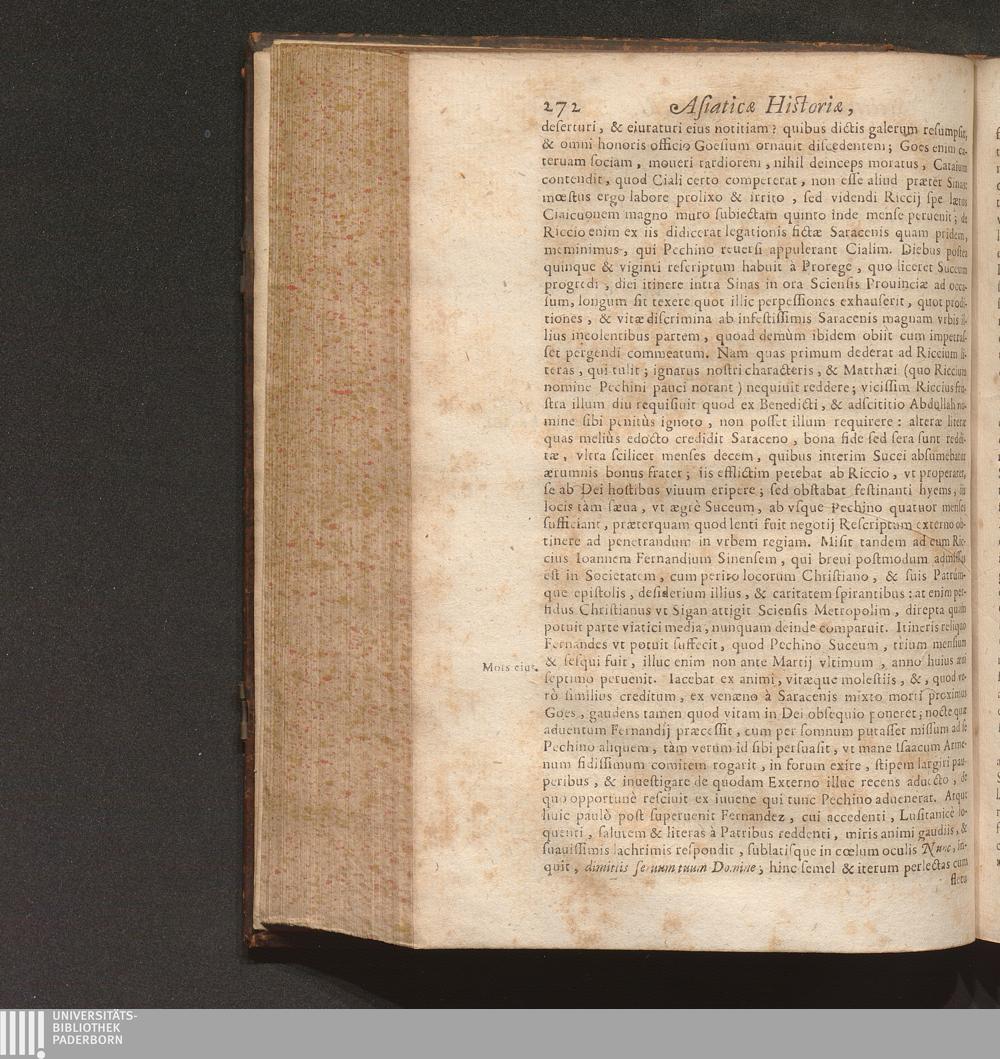 272 Aſiaticæ Hiſtoriæ,
deſerturi, & eiuraturi eius notitiam? quibus dictis galerum reſumpſit,
& omni honoris officio Goeſium ornauit diſcedentem; Goes enim ca-
teruam ſociam, moueri tardiorem, nihil deinceps moratus, Cataium
contendit, quod Ciali certo compererat, non eſſe aliud præter Sinas:
mœſtus ergo labore prolixo & irrito, ſed videndi Riccij ſpe lætus
Ciaicuonem magno muro ſubiectam quinto inde menſe peruenit; de
Riccio enim ex iis didicerat legationis fictæ Saracenis quam pridem,
meminimus, qui Pechino reuerſi appulerant Cialim. Diebus poſtea
quinque & viginti reſcriptum habuit à Prorege, quo liceret Succum
progredi, diei itinere intra Sinas in ora Scienſis Prouinciæ ad occa-
ſum, longum ſit texere quot illic perpeſſiones exhauſerit, quot prodi-
tiones, & vitæ diſcrimina ab infeſtiſſimis Saracenis magnam vrbis il-
lius incolentibus partem, quoad demùm ibidem obiit cum impetraſ-
ſet pergendi commeatum. Nam quas primum dederat ad Riccium li-
teras, qui tulit; ignarus noſtri characteris, & Matthæi (quo Riccium
nomine Pechini pauci norant) nequiuit reddere; viciſſim Riccius fru-
ſtra illum diu requiſiuit quod ex Benedicti, & adſcititio Abdullah no-
mine ſibi penitùs ignoto, non poſſet illum requirere: alteræ literæ
quas meliùs edocto credidit Saraceno, bona fide ſed ſera ſunt reddi-
tæ, vltra ſcilicet menſes decem, quibus interim Sucei abſumebatur
ærumnis bonus frater; iis efflictim petebat ab Riccio, vt properaret,
ſe ab Dei hoſtibus viuum eripere; ſed obſtabat feſtinanti hyems, iis
locis tàm ſæua, vt ægrè Suceum, ab vſque Pechino quatuor menſes
ſufficiant, præterquam quod lenti fuit negotij Reſcriptum externo ob-
tinere ad penetrandum in vrbem regiam. Miſit tandem ad eum Ric-
cius Ioannem Fernandium Sinenſem, qui breui poſtmodum admiſſus
eſt in Societatem, cum perito locorum Chriſtiano, & ſuis Patrum-
que epiſtolis, deſiderium illius, & caritatem ſpirantibus: at enim per-
fidus Chriſtianus vt Sigan attigit Scienſis Metropolim, direpta quam
potuit parte viatici media, nunquam deinde comparuit. Itineris reliquo
Fernandes vt potuit ſuffecit, quod Pechino Suceum, trium menſium
& ſeſqui fuit, illuc enim non ante Martij vltimum, anno huius æui
Mors eius.
ſeptimo peruenit. Iacebat ex animi, vitæque moleſtiis, &, quod ve-
rò ſimilius creditum, ex venæno à Saracenis mixto morti proximus
Goes, gaudens tamen quod vitam in Dei obſequio poneret; nocte quæ
aduentum Fernandij præceſſit, cum per ſomnum putaſſet miſſum ad ſe
Pechino aliquem, tàm verùm id ſibi perſuaſit, vt mane Iſaacum Arme-
num fidiſſimum comitem rogarit, in forum exire, ſtipem largiri pau-
peribus, & inueſtigare de quodam Externo illuc recens aducto, de
quo opportunè reſciuit ex iuuene qui tunc Pechino aduenerat. Atque
huic paulò poſt ſuperuenit Fernandez, cui accedenti, Luſitanicè lo-
quenti, ſalutem & literas à Patribus reddenti, miris animi gaudiis, &
ſuauiſſimis lachrimis reſpondit, ſublatiſque in cœlum oculis Nunc, in-
quit, dimittis ſeruum tuum Domine; hinc ſemel & iterum perlectas cum
fletu
UNIVERSITÄTS-
BIBLIOTHEK
PADERBORN